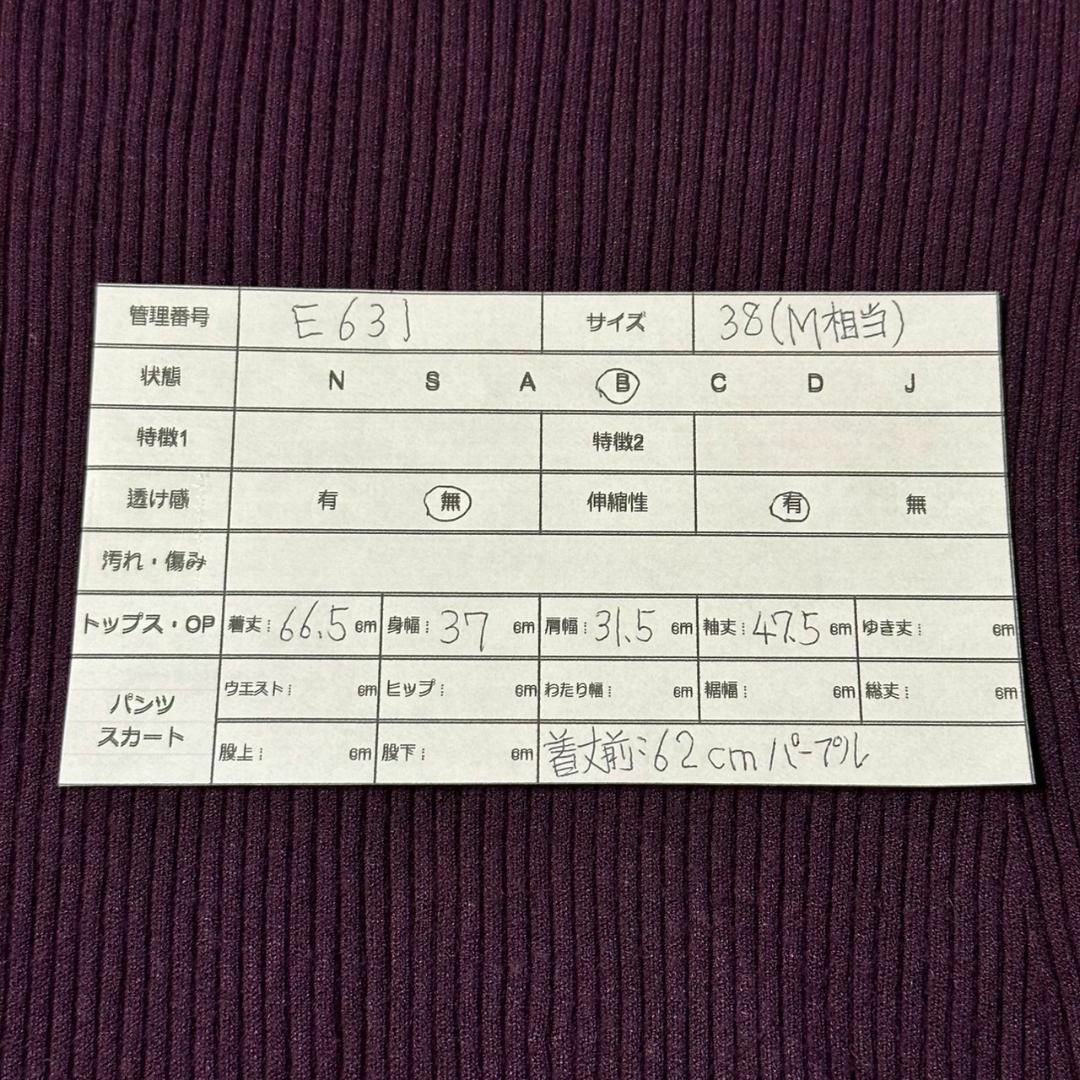 管理番号 E63J サイズ 38(M相当)
状態 N S A B C D J
特徴1 特徴2
透け感 有 無 伸縮性 有 無
汚れ・傷み
トップス・OP 着丈:66.5cm 身幅:37cm 肩幅:31.5cm 袖丈:47.5cm ゆき丈:cm
パンツ スカート ウエスト:cm ヒップ:cm わたり幅:cm 裾幅:cm 総丈:cm
股上:cm 股下:cm 着丈前:62cm パープル